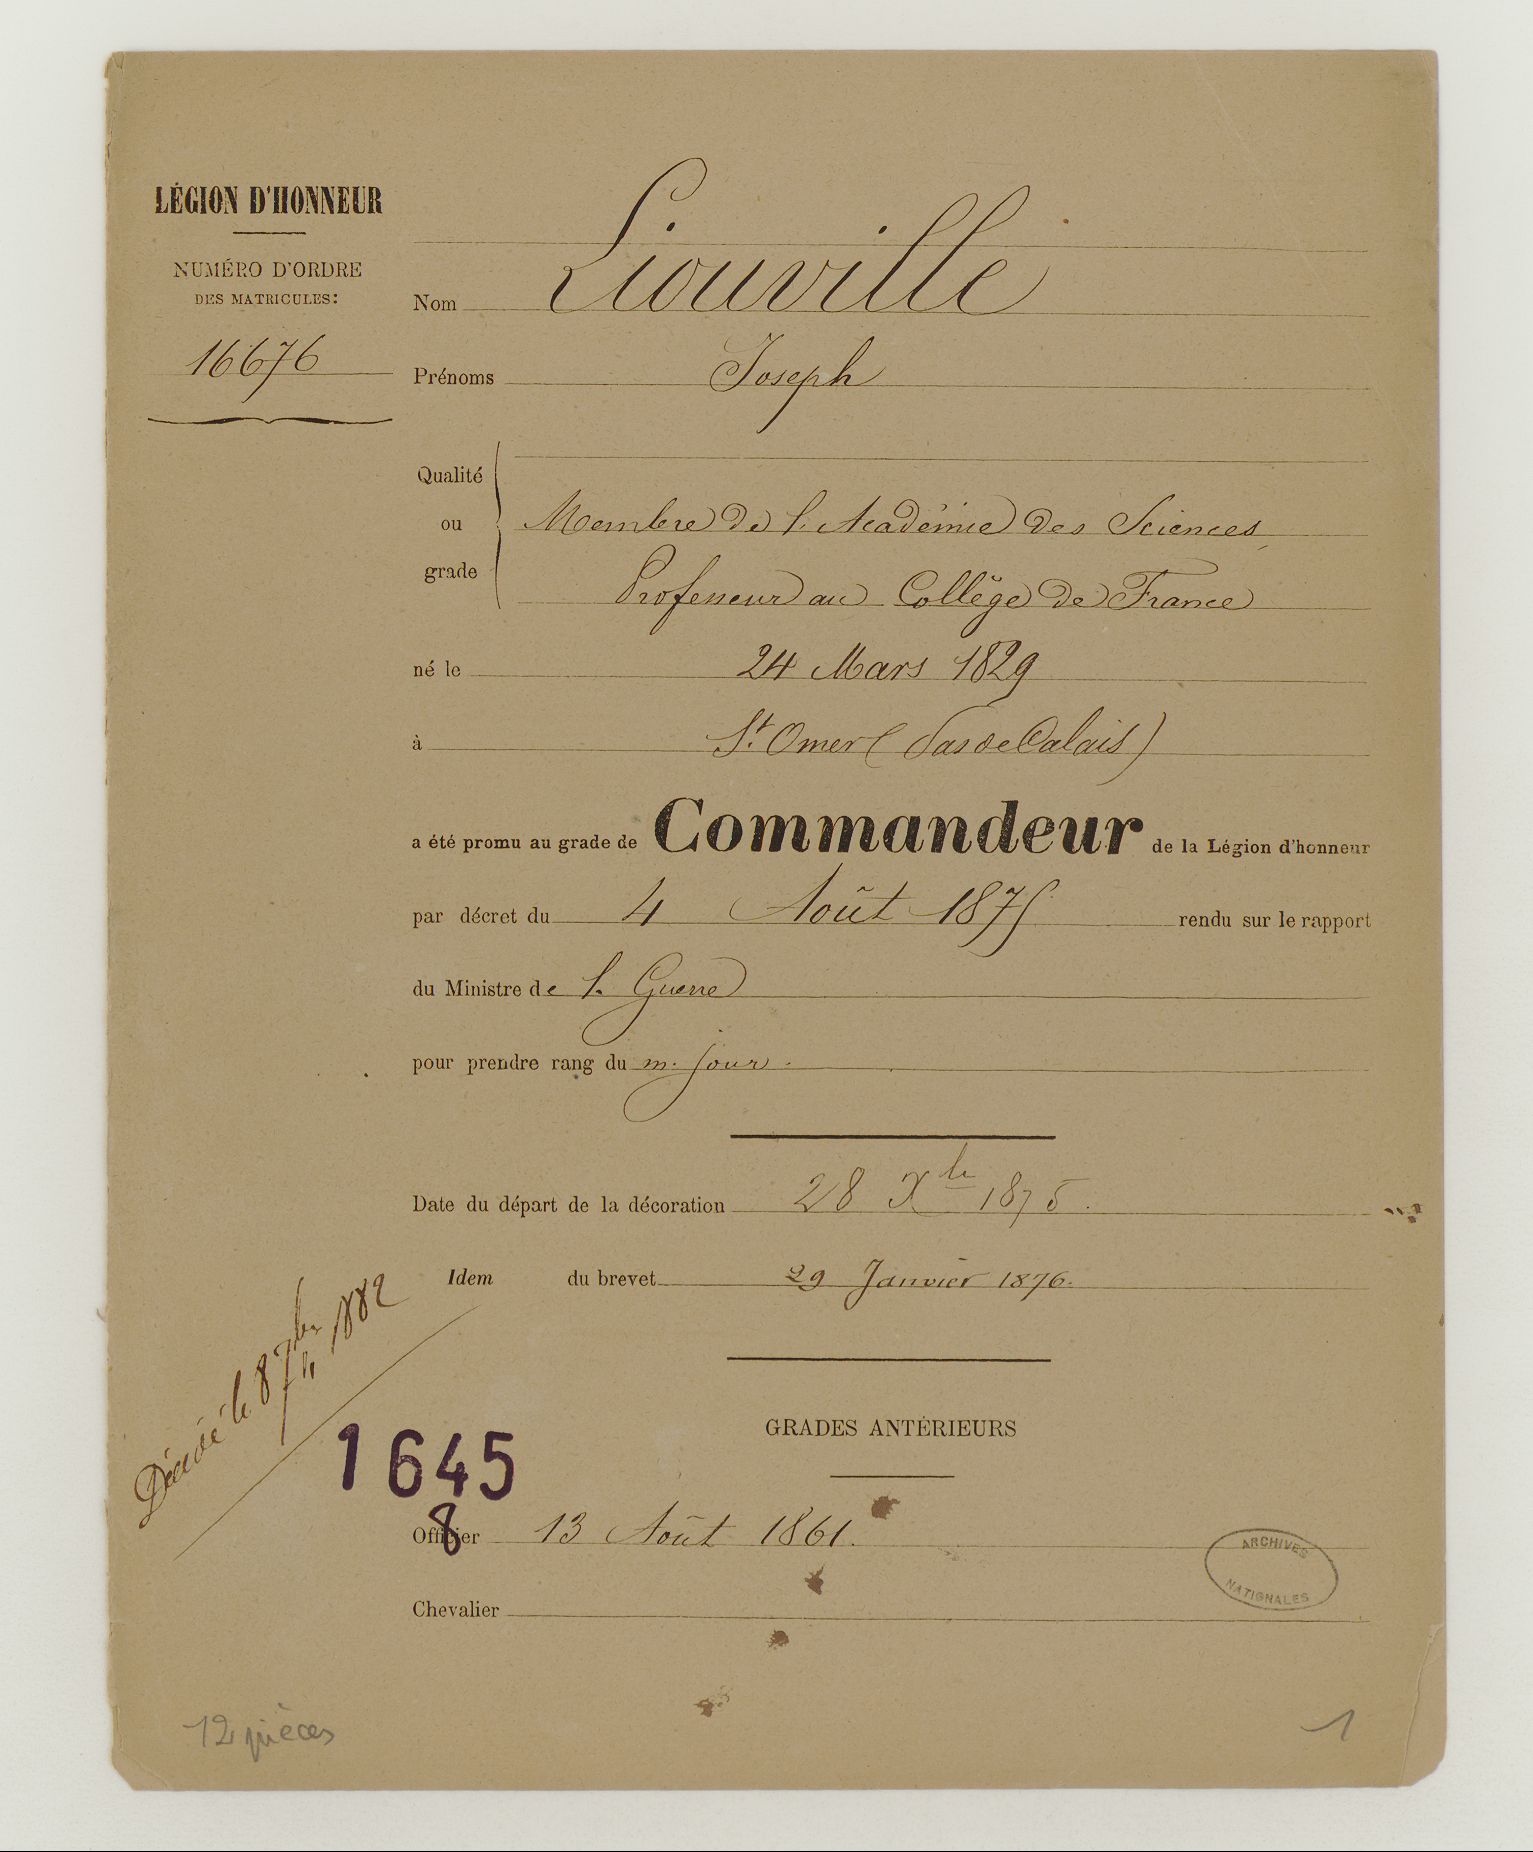 LÉGION D'HONNEUR
NUMÉRO D'ORDRE
DES MATRICULES:
16676
Nom Liouville
Prénoms Joseph
Qualité
ou
grade
Membre de l'Académie des Sciences,
Professeur au Collège de France
né le 24 Mars 1829
à St. Omer (Pas de Calais)
a été promu au grade de Commandeur de la Légion d'honneur
par décret du 4 Août 1875 rendu sur le rapport
du Ministre de la Guerre
pour prendre rang du m. jour.
Date du départ de la décoration 28 Xbre 1875.
Idem du brevet 29 Janvier 1876.
Décédé le 8 7bre 1882
GRADES ANTÉRIEURS
1645
8
Officier 13 Août 1861.
Chevalier
ARCHIVES
NATIONALES
12 pièces
1